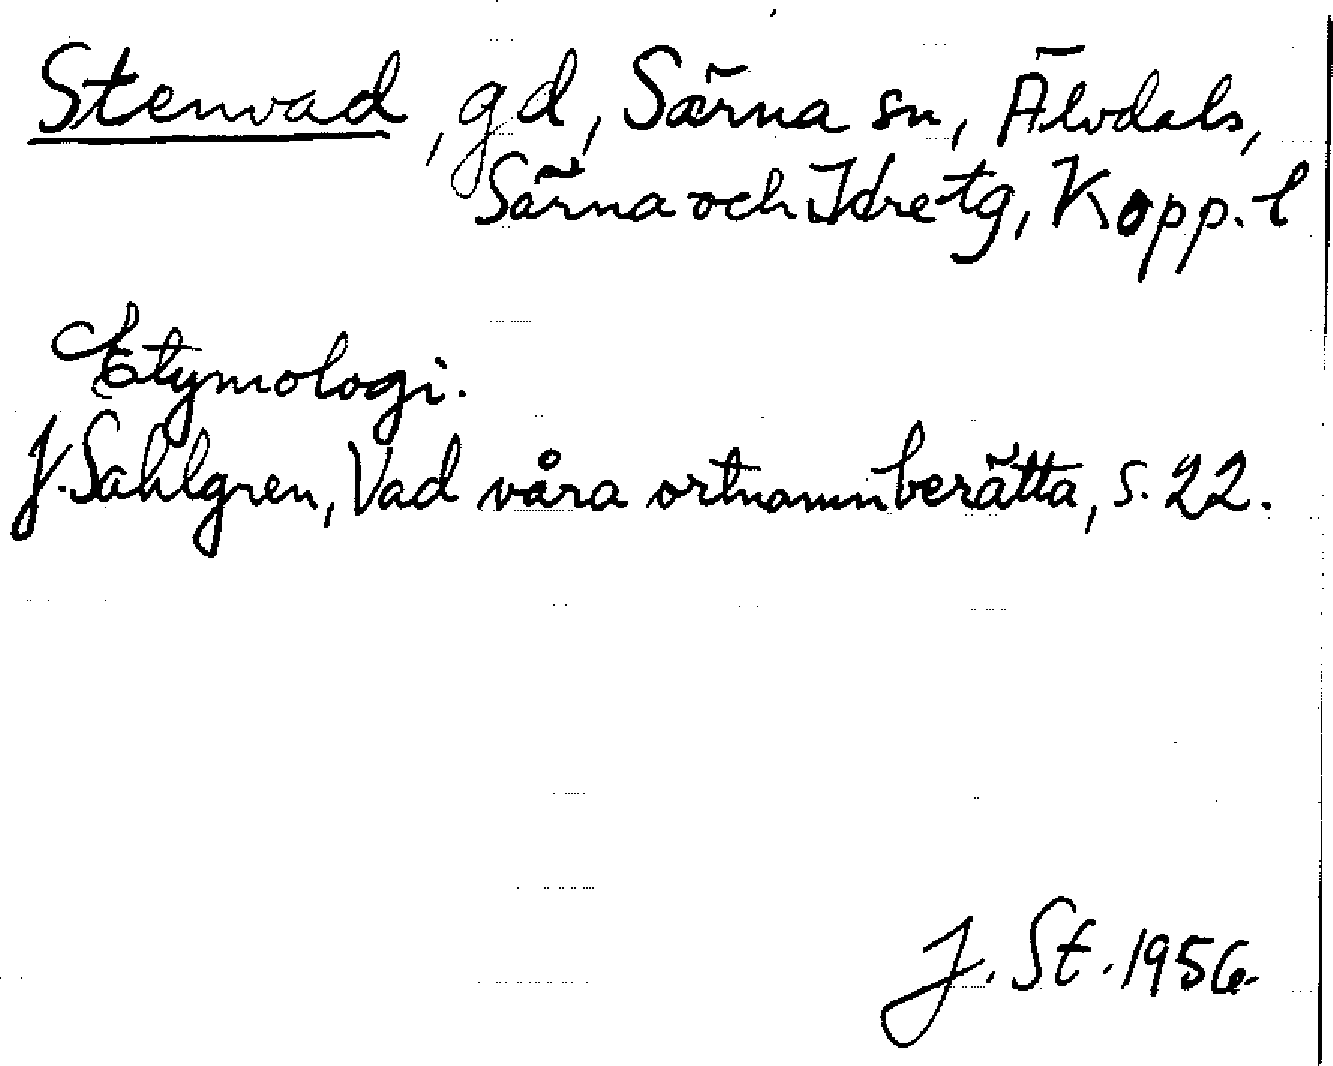 Stenvad, gd, Särna sn, Älvdals,
Särna och Idre tg, Kopp. l
Etymologi.
J. Sahlgren, Vad våra ortnamn berätta, s. 22.
J. St. 1956.